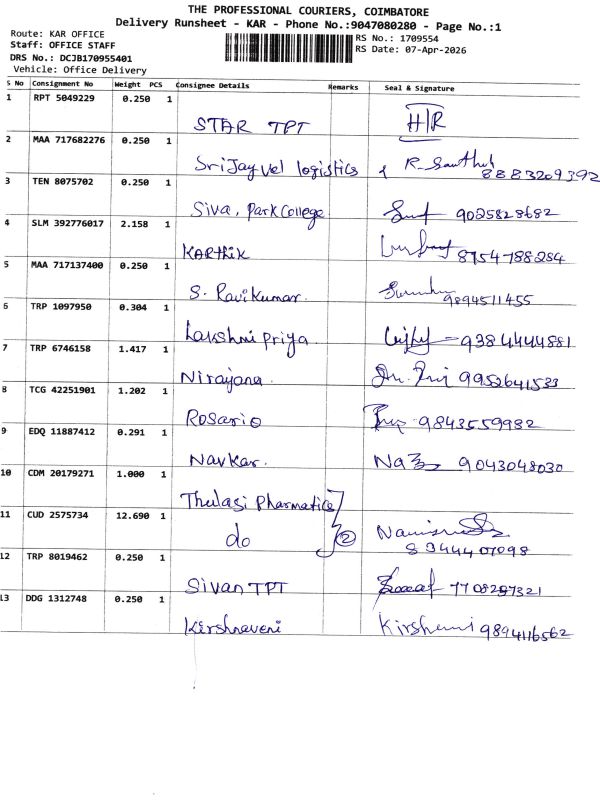 THE PROFESSIONAL COURIERS, COIMBATORE
Delivery Runsheet - KAR - Phone No.:9047080280 - Page No.:1
Route: KAR OFFICE
RS No.: 1709554
Staff: OFFICE STAFF
RS Date: 07-Apr-2026
DRS No.: DCJB170955401
Vehicle: Office Delivery
S No Consignment No Weight PCS Consignee Details Remarks Seal & Signature
1 RPT 5049229 0.250 1 STAR TPT H/R
2 MAA 717682276 0.250 1 Srijayvel logistics R. 8883209392
3 TEN 8075702 0.250 1 Siva, Park College 9025828682
4 SLM 392776017 2.158 1 KARTHIK 8754788284
5 MAA 717137400 0.250 1 S. Ravikumar. 9894511455
6 TRP 1097950 0.304 1 Lakshmi priya 9384444881
7 TRP 6746158 1.417 1 Nirajana 9952641533
8 TCG 42251901 1.202 1 Rosario 9843559982
9 EDQ 11887412 0.291 1 Navkar. 9043048030
10 CDM 20179271 1.000 1 Thulasi Pharmatics
11 CUD 2575734 12.690 1 do 2
12 TRP 8019462 0.250 1 Sivan TPT 7708297321
13 DDG 1312748 0.250 1 Kirshnaveni 9894116562